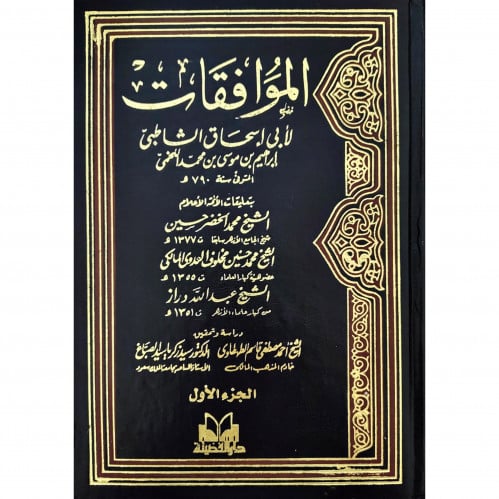 الموافقات
لأبي إسحاق الشاطبي
إبراهيم بن موسى بن محمد اللخمي
المتوفى سنة ٧٩٠ هـ
بتعليقات الأئمة الأعلام
الشيخ محمد الخضر حسين
شيخ الجامع الأزهر سابقا ت ١٣٧٧ هـ
الشيخ محمد حسنين مخلوف العدوي المالكي
عضو هيئة كبار العلماء ت ١٣٥٥ هـ
الشيخ عبد الله دراز
من كبار علماء الأزهر ت ١٣٥١ هـ
دراسة وتحقيق
الشيخ أحمد مصطفى قاسم الطهطاوي الدكتور سيد زكريا سيد الصباغ
خادم المذهب المالكي الأستاذ المساعد بجامعة الملك سعود
الجزء الأول
دار الفضيلة